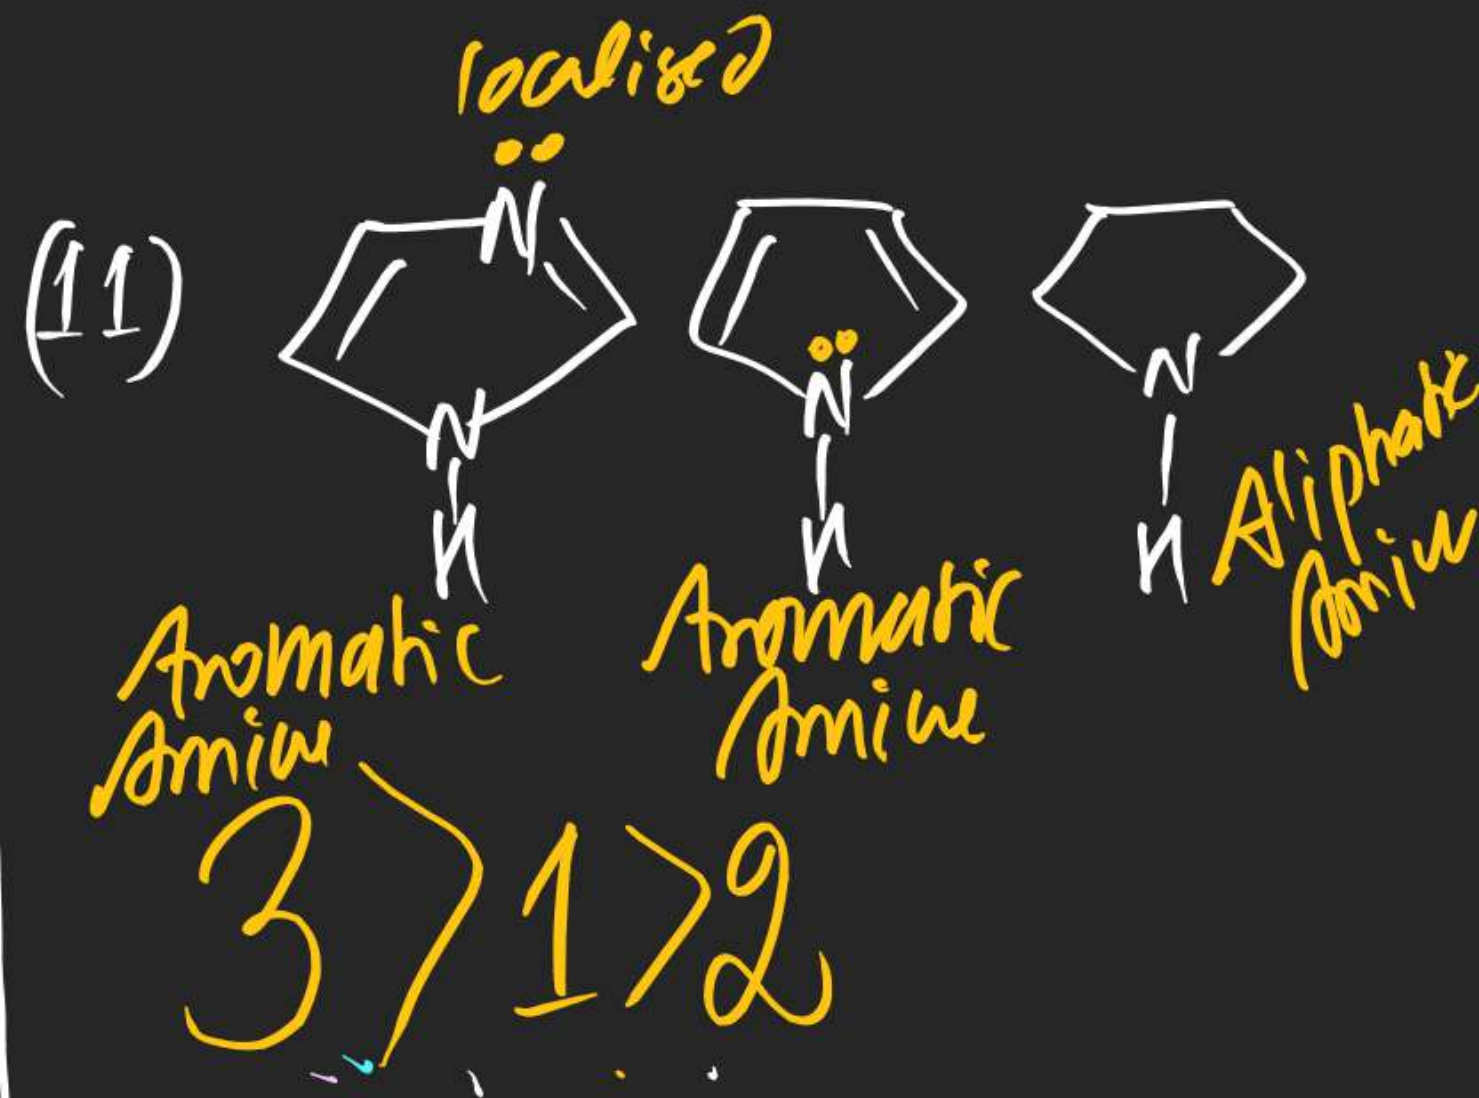 localised
(11)
N
N
H
N
H
N
H
Aliphatic
Amine
Aromatic
Amine
Aromatic
Amine
3 > 1 > 2